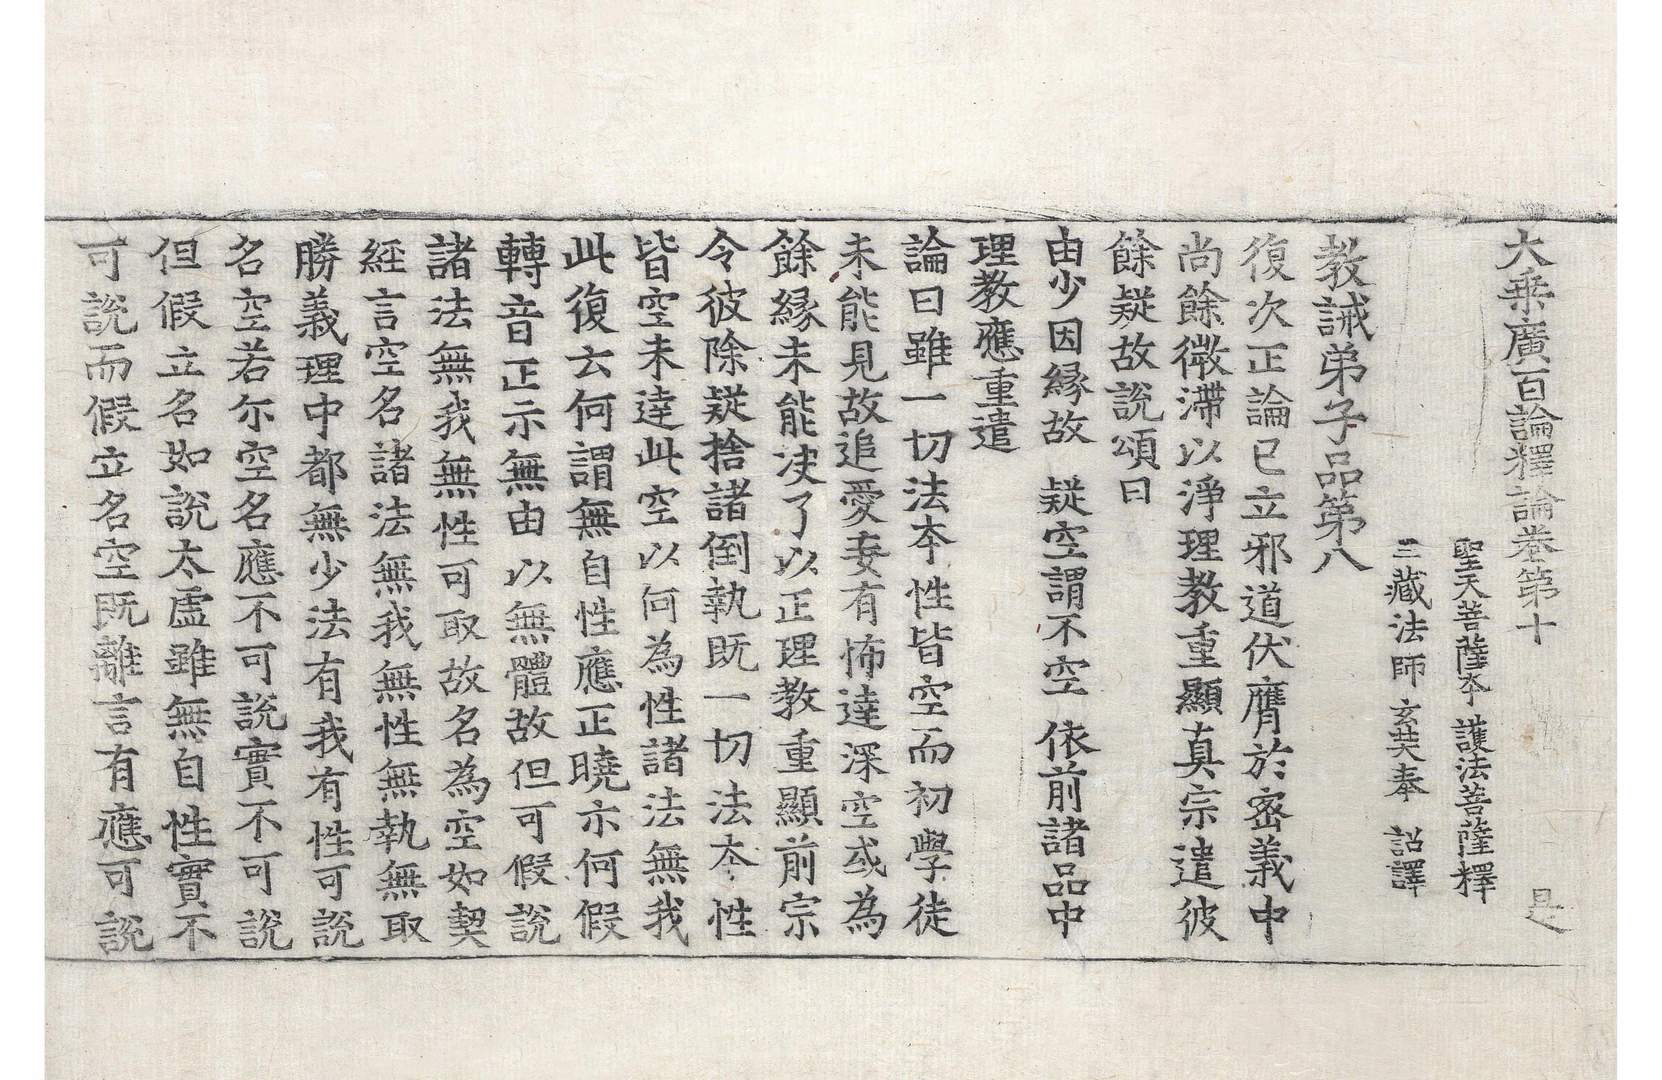 大乗廣百論釋論卷第十　是
聖天菩薩夲　護法菩薩釋
三藏法師玄奘奉　詔譯
教誡弟子品第八
復次正論已立邪道伏膺於密義中
尚餘微滯以淨理教重顯真宗遣彼
餘疑故說頌曰
由少因縁故　疑空謂不空　依前諸品中
理教應重遣
論曰雖一切法夲性皆空而初學徒
未能見故追愛妻有怖達深空或為
餘縁未能决了以正理教重顯前宗
令彼除疑捨諸倒執既一切法夲性
皆空未達此空以何為性諸法無我
此復云何謂無自性應正曉示何假
轉音正示無由以無體故但可假說
諸法無我無性可取故名為空如契
經言空名諸法無我無性無執無取
勝義理中都無少法有我有性可說
名空若尓空名應不可說實不可說
但假立名如說太虛雖無自性實不
可說而假立名空既離言有應可說